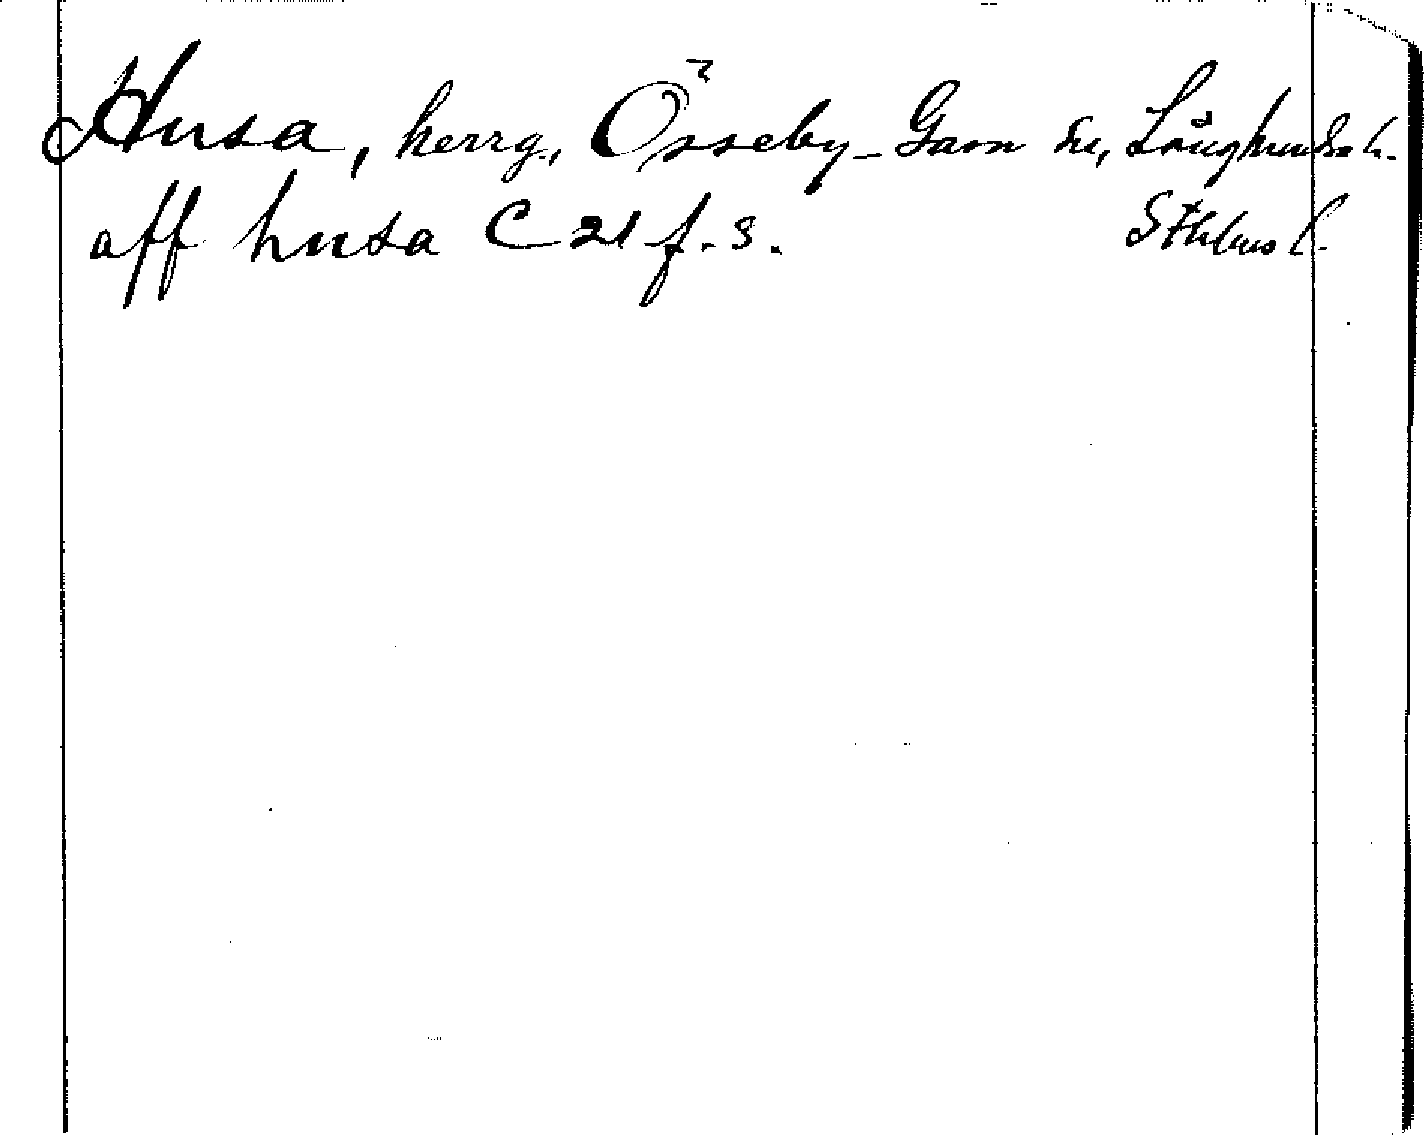 Husa, herrg., Össeby-Garn sn, Långhundra h.
aff husa C 21 f. 3. Sthlms l.